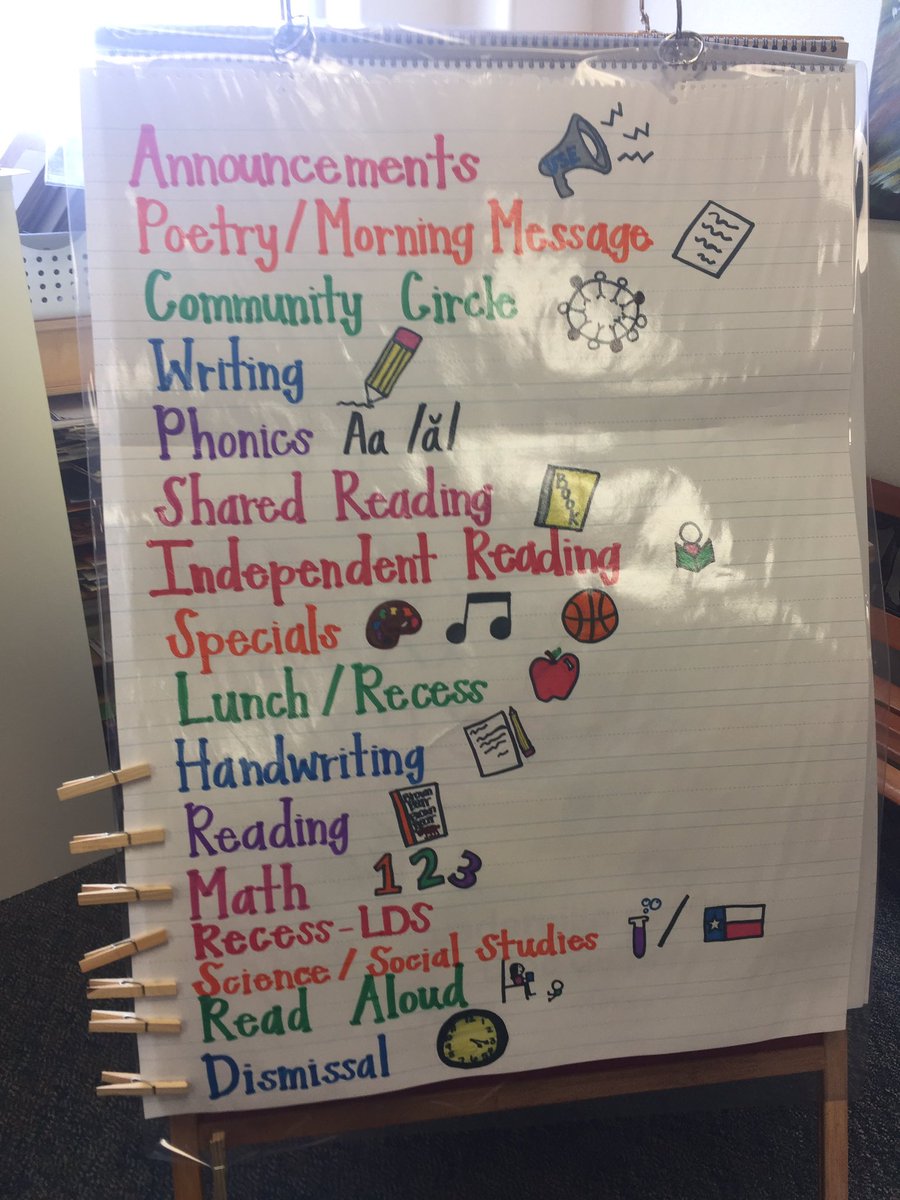 Announcements
Poetry/Morning Message
Community Circle
Writing
Phonics Aa /ă/
Shared Reading BOOK
Independent Reading
Specials
Lunch/Recess
Handwriting
Reading
Math 123
Recess-LDS
Science/Social Studies
Read Aloud
Dismissal